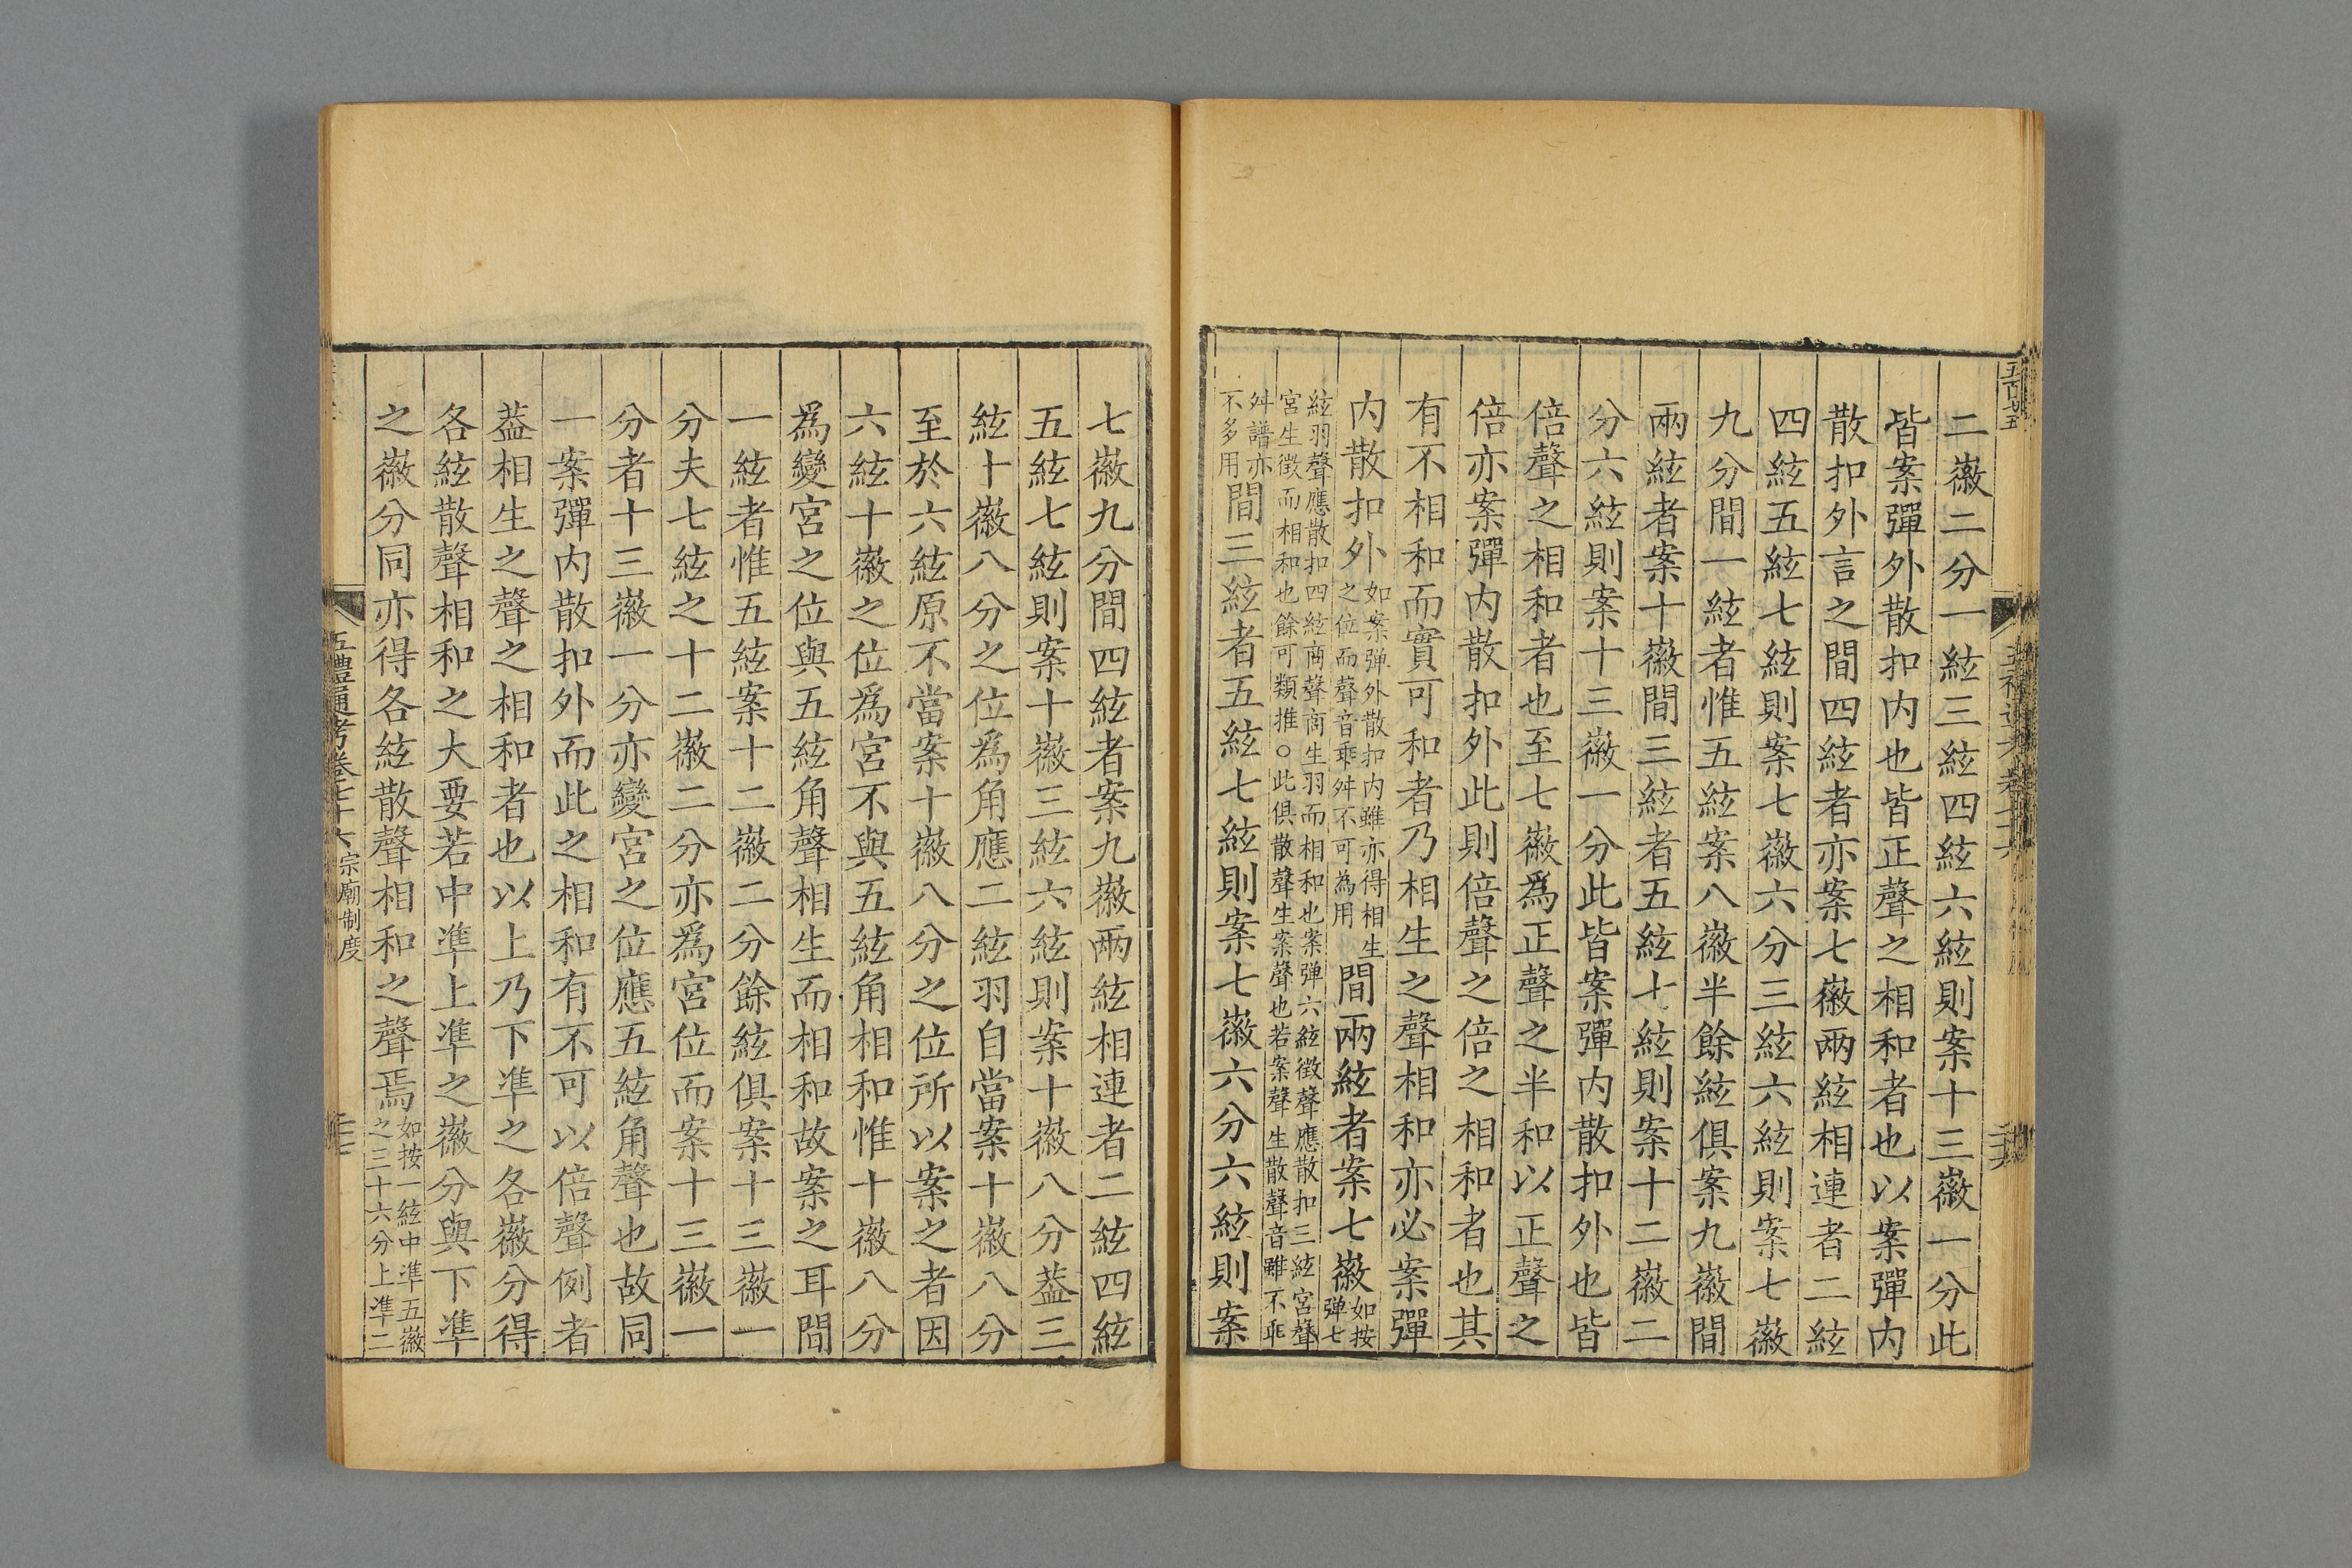 二徽二分一絃三絃四絃六絃則案十三徽一分此
皆案彈外散扣内也皆正聲之相和者也以案彈内
散扣外言之間四絃者亦案七徽兩絃相連者二絃
四絃五絃七絃則案七徽六分三絃六絃則案七徽
九分間一絃者惟五絃案八徽半餘絃俱案九徽間
兩絃者案十徽間三絃者五絃七絃則案十二徽二
分六絃則案十三徽一分此皆案彈内散扣外也皆
倍聲之相和者也至七徽爲正聲之半和以正聲之
倍亦案彈内散扣外此則倍聲之倍之相和者也其
有不相和而實可和者乃相生之聲相和亦必案彈
内散扣外如案弹外散扣内雖亦得相生之位而聲音乖舛不可為用間兩絃者案七徽如按弹七
絃羽聲應散扣四絃商聲商生羽而相和也案弹六絃徵聲應散扣三絃宮聲
宮生徵而相和也餘可類推○此俱散聲生案聲也若案聲生散聲音雖不乖
舛譜亦不多用間三絃者五絃七絃則案七徽六分六絃則案
七徽九分間四絃者案九徽兩絃相連者二絃四絃
五絃七絃則案十徽三絃六絃則案十徽八分葢三
絃十徽八分之位爲角應二絃羽自當案十徽八分
至於六絃原不當案十徽八分之位所以案之者因
六絃十徽之位爲宮不與五絃角相和惟十徽八分
爲變宮之位與五絃角聲相生而相和故案之耳間
一絃者惟五絃案十二徽二分餘絃俱案十三徽一
分夫七絃之十二徽二分亦爲宮位而案十三徽一
分者十三徽一分亦變宮之位應五絃角聲也故同
一案彈内散扣外而此之相和有不可以倍聲例者
葢相生之聲之相和者也以上乃下準之各徽分得
各絃散聲相和之大要若中準上準之徽分與下準
之徽分同亦得各絃散聲相和之聲焉如按一絃中準五徽之三十六分上準二
五禮通考卷七十六宗廟制度